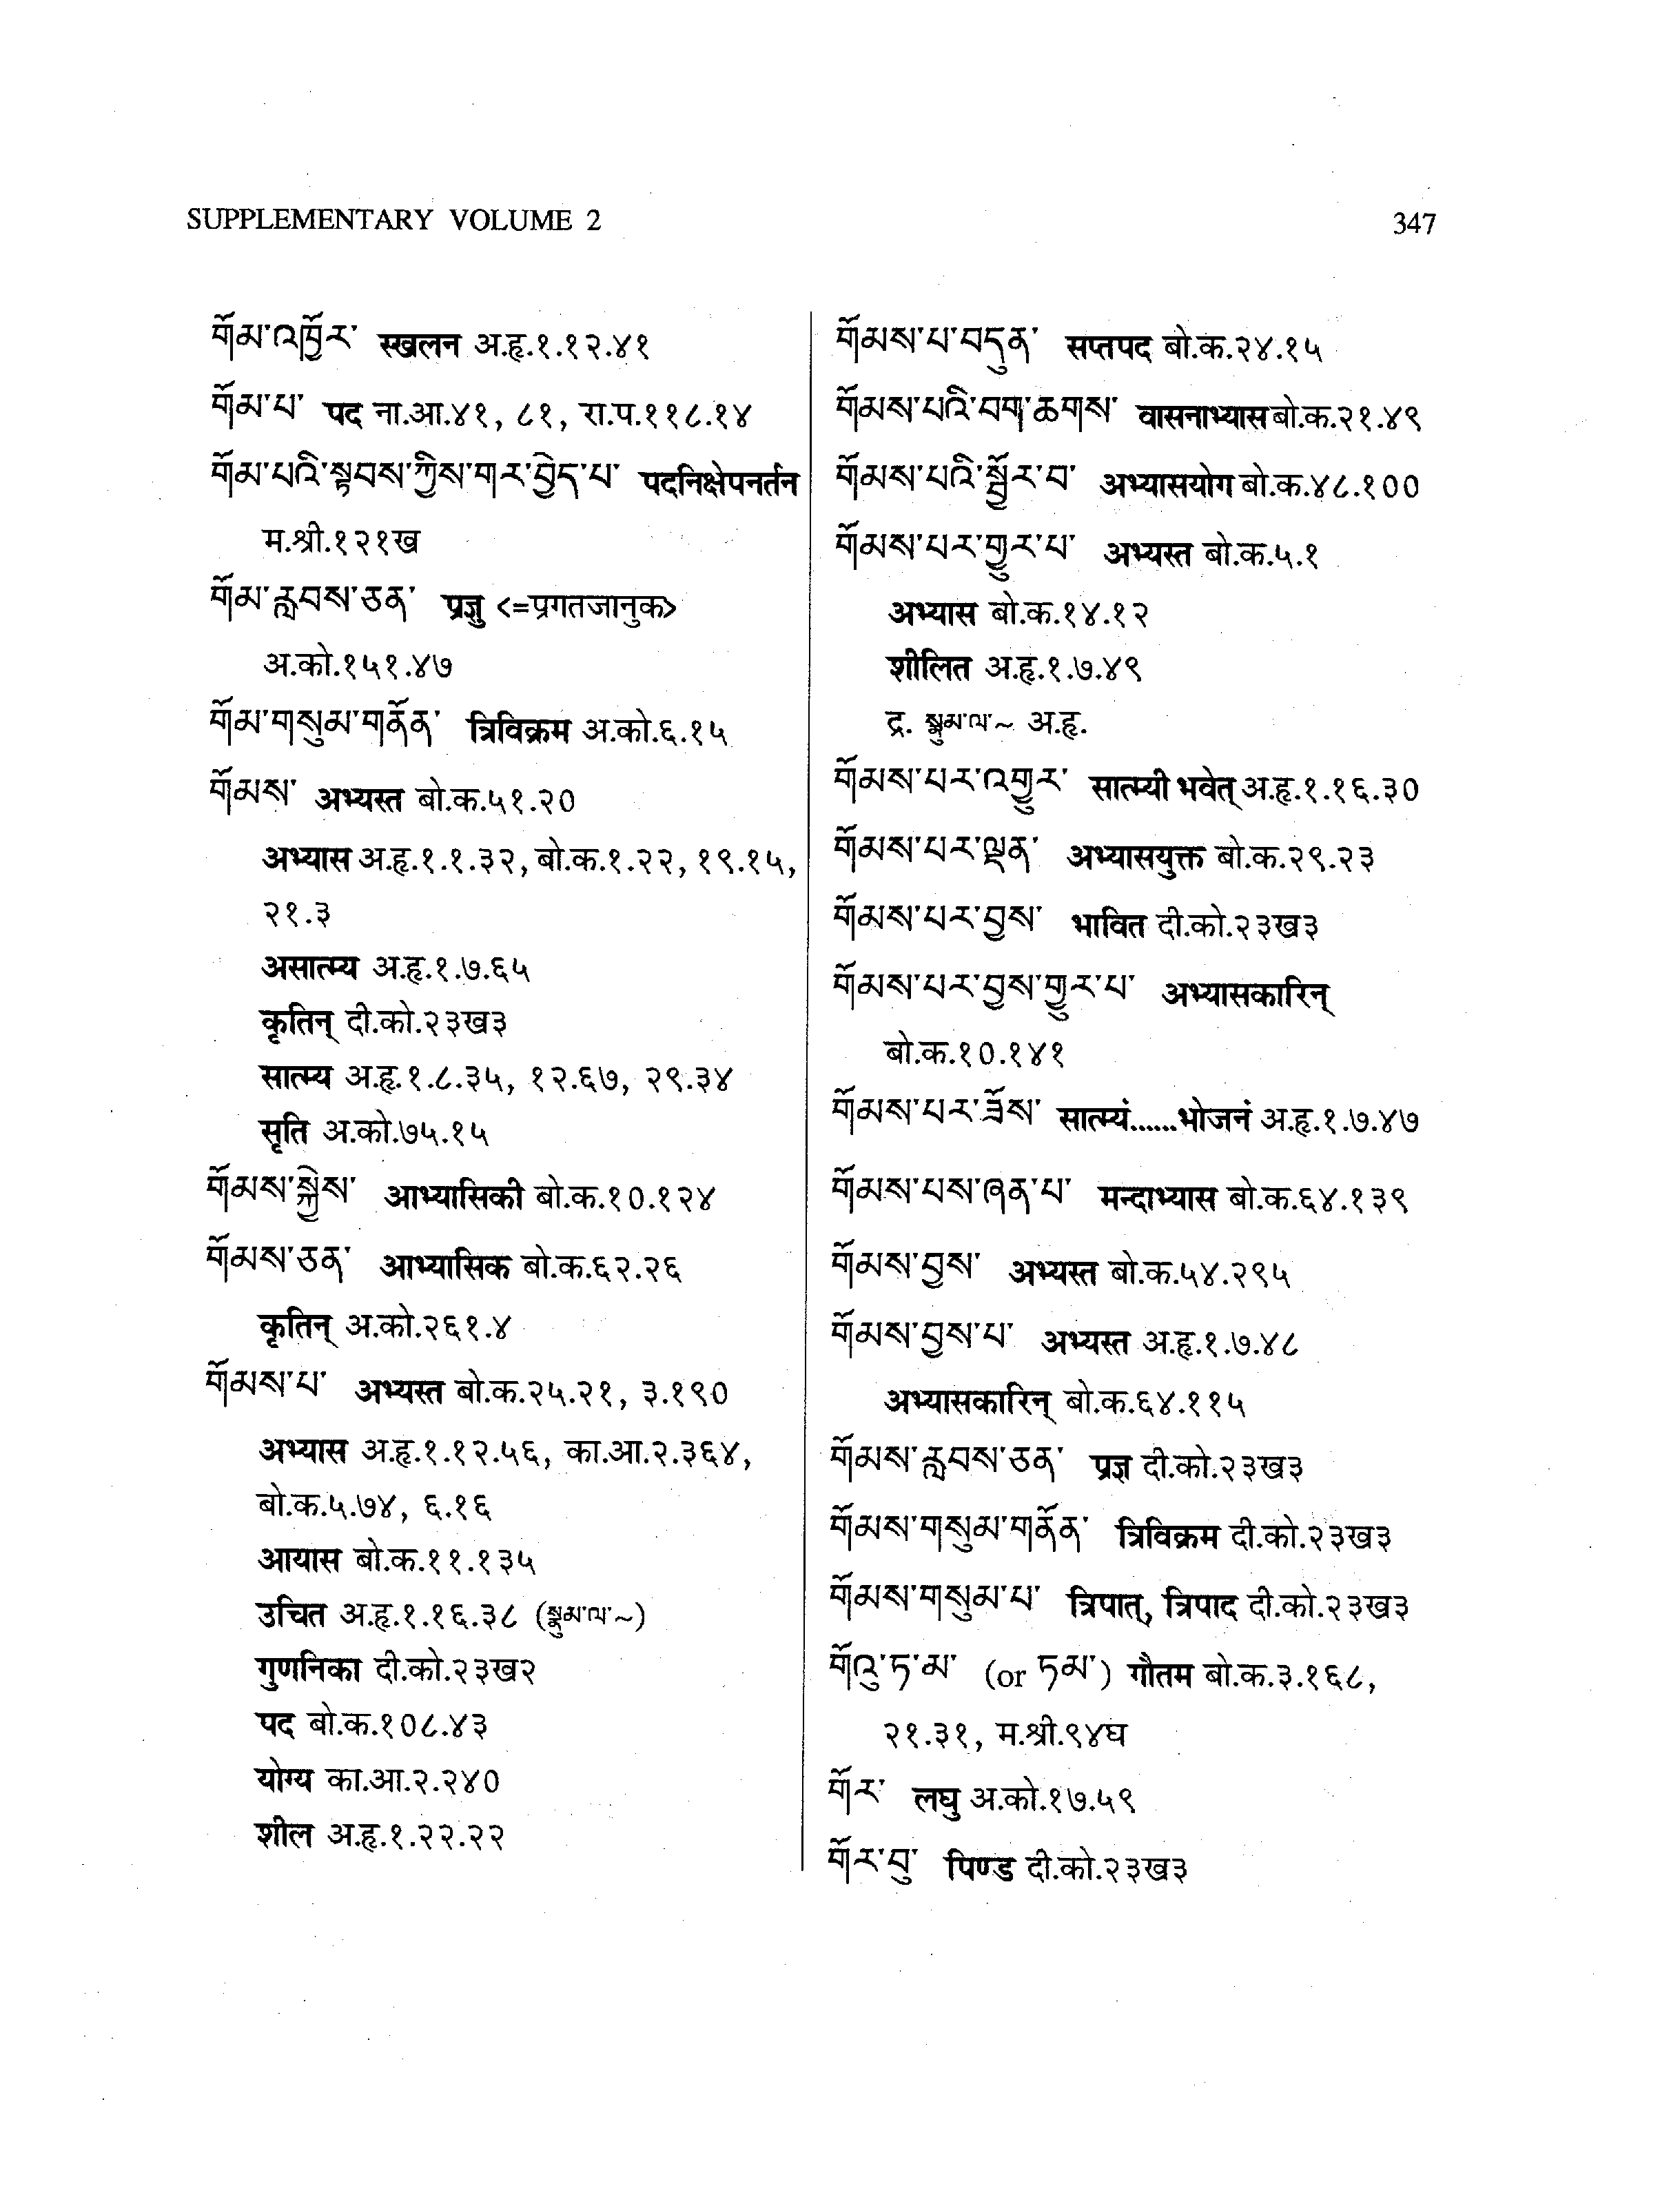 SUPPLEMENTARY VOLUME 2
347
གོམ་འཁྱོར་ स्खलन अ.हृ.१.१२.४१
གོམ་པ་ पद ना.आ.४१, ८१, रा.प.११८.१४
གོམ་པའི་སྟབས་ཀྱིས་གར་བྱེད་པ་ पदनिक्षेपनर्तन
म.श्री.१२१ख
གོམ་རླབས་ཅན་ प्रज्ञु <=प्रगतजानुक>
अ.को.१५१.४७
གོམ་གསུམ་གནོན་ त्रिविक्रम अ.को.६.१५
གོམས་ अभ्यस्त बो.क.५१.२०
अभ्यास अ.हृ.१.१.३२, बो.क.१.२२, १९.१५,
२१.३
असात्म्य अ.हृ.१.७.६५
कृतिन् दी.को.२३ख३
सात्म्य अ.हृ.१.८.३५, १२.६७, २९.३४
सृति अ.को.७५.१५
གོམས་སྐྱེས་ आभ्यासिकी बो.क.१०.१२४
གོམས་ཅན་ आभ्यासिक बो.क.६२.२६
कृतिन् अ.को.२६१.४
གོམས་པ་ अभ्यस्त बो.क.२५.२१, ३.१९०
अभ्यास अ.हृ.१.१२.५६, का.आ.२.३६४,
बो.क.५.७४, ६.१६
आयास बो.क.११.१३५
उचित अ.हृ.१.१६.३८ (སྣུམ་ལ་~)
गुणनिका दी.को.२३ख२
पद बो.क.१०८.४३
योग्य का.आ.२.२४०
शील अ.हृ.१.२२.२२
གོམས་པ་བདུན་ सप्तपद बो.क.२४.१५
གོམས་པའི་བག་ཆགས་ वासनाभ्यास बो.क.२१.४९
གོམས་པའི་སྦྱོར་བ་ अभ्यासयोग बो.क.४८.१००
གོམས་པར་གྱུར་པ་ अभ्यस्त बो.क.५.१
अभ्यास बो.क.१४.१२
शीलित अ.हृ.१.७.४९
द्र. སྣུམ་ལ་~ अ.हृ.
གོམས་པར་འགྱུར་ सात्म्यी भवेत् अ.हृ.१.१६.३०
གོམས་པར་ལྡན་ अभ्यासयुक्त बो.क.२९.२३
གོམས་པར་བྱས་ भावित दी.को.२३ख३
གོམས་པར་བྱས་གྱུར་པ་ अभ्यासकारिन्
बो.क.१०.१४१
གོམས་པར་ཟོས་ सात्म्यं......भोजनं अ.हृ.१.७.४७
གོམས་པས་ཞན་པ་ मन्दाभ्यास बो.क.६४.१३९
གོམས་བྱས་ अभ्यस्त बो.क.५४.२९५
གོམས་བྱས་པ་ अभ्यस्त अ.हृ.१.७.४८
अभ्यासकारिन् बो.क.६४.११५
གོམས་རླབས་ཅན་ प्रज्ञ दी.को.२३ख३
གོམས་གསུམ་གནོན་ त्रिविक्रम दी.को.२३ख३
གོམས་གསུམ་པ་ त्रिपात्, त्रिपाद दी.को.२३ख३
གོའུ་ཏ་མ་ (or ཏམ་) गौतम बो.क.३.१६८,
२१.३१, म.श्री.९४घ
གོར་ लघु अ.को.१७.५९
གོར་བུ་ पिण्ड दी.को.२३ख३